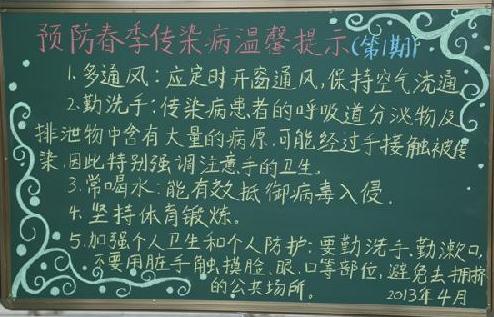 预防春季传染病温馨提示(第1期)
1.多通风:应定时开窗通风,保持空气流通
2.勤洗手:传染病患者的呼吸道分泌物及
排泄物中含有大量的病原,可能经过手接触被传
染,因此特别强调注意手的卫生。
3.常喝水:能有效抵御病毒入侵.
4.坚持体育锻炼。
5.加强个人卫生和个人防护:要勤洗手.勤漱口,
不要用脏手触摸脸、眼、口等部位,避免去拥挤
的公共场所。
2013年4月